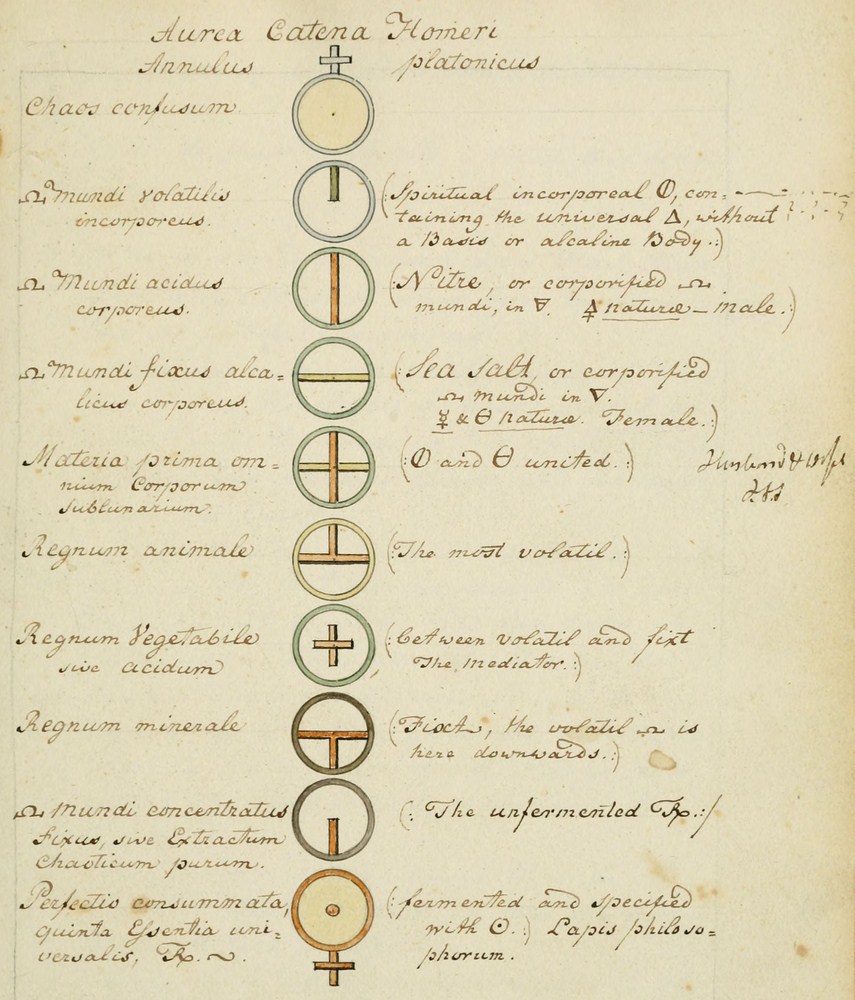 Aurea Catena Homeri
Annulus platonicus
Chaos confusum
♎ Mundi volatilis
incorporeus.
(: Spiritual incorporeal 🜕, con:
taining the universal 🜂, without
a Basis or alcaline Body. :)
♎ Mundi acidus
corporeus.
(: Nitre, or corporified ♎
mundi, in 🜃. 🜍 naturæ – male. :)
♎ Mundi fixus alca=
licus corporeus.
(: Sea salt, or corporified
♎ mundi in 🜃.
☿ & 🜔 naturæ. Female. :)
Materia prima om=
nium Corporum
sublunarium.
(: 🜕 and 🜔 united. :)
Husband & Wife
Regnum animale
(: The most volatil. :)
Regnum Vegetabile
sive acidum
(: between volatil and fixt
The mediator. :)
Regnum minerale
(: Fixt, the volatil ♎ is
here downwards. :)
♎ Mundi concentratus
Fixus, sive Extractum
Chaoticum purum.
(: The unfermented ℞. :/
Perfectio consummata,
quinta Essentia uni=
versalis, ℞. ~.
(: fermented and specified
with ☉. :) Lapis philoso=
phorum.